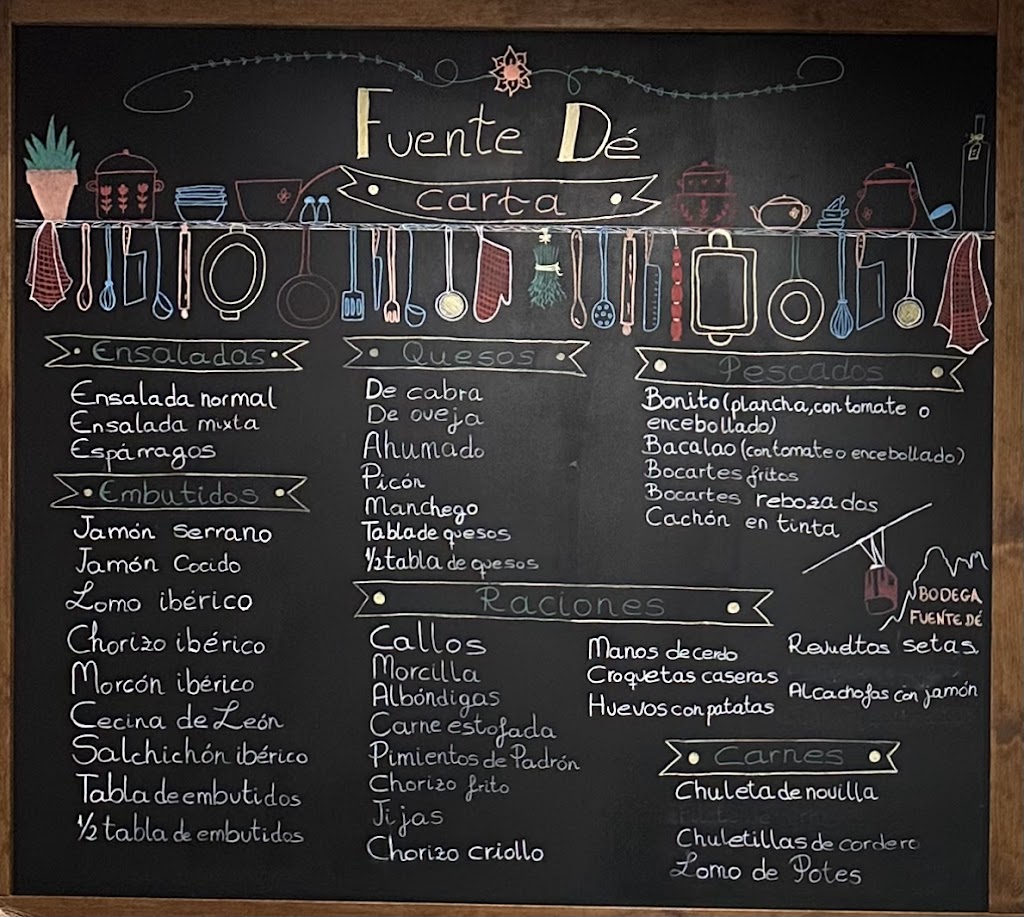 Fuente Dé
Carta
Ensaladas
Ensalada normal
Ensalada mixta
Espárragos
Embutidos
Jamón serrano
Jamón Cocido
Lomo ibérico
Chorizo ibérico
Morcón ibérico
Cecina de León
Salchichón ibérico
Tabla de embutidos
1/2 tabla de embutidos
Quesos
De cabra
De oveja
Ahumado
Picón
Manchego
Tabla de quesos
1/2 tabla de quesos
Pescados
Bonito (plancha, con tomate o
encebollado)
Bacalao (con tomate o encebollado)
Bocartes fritos
Bocartes rebozados
Cachón en tinta
BODEGA
FUENTE DÉ
Raciones
Callos
Morcilla
Albóndigas
Carne estofada
Pimientos de Padrón
Chorizo frito
Jijas
Chorizo criollo
Manos de cerdo
Croquetas caseras
Huevos con patatas
Revueltos setas.
Alcachofas con jamón
Carnes
Chuleta de novilla
Chuletillas de cordero
Lomo de Potes